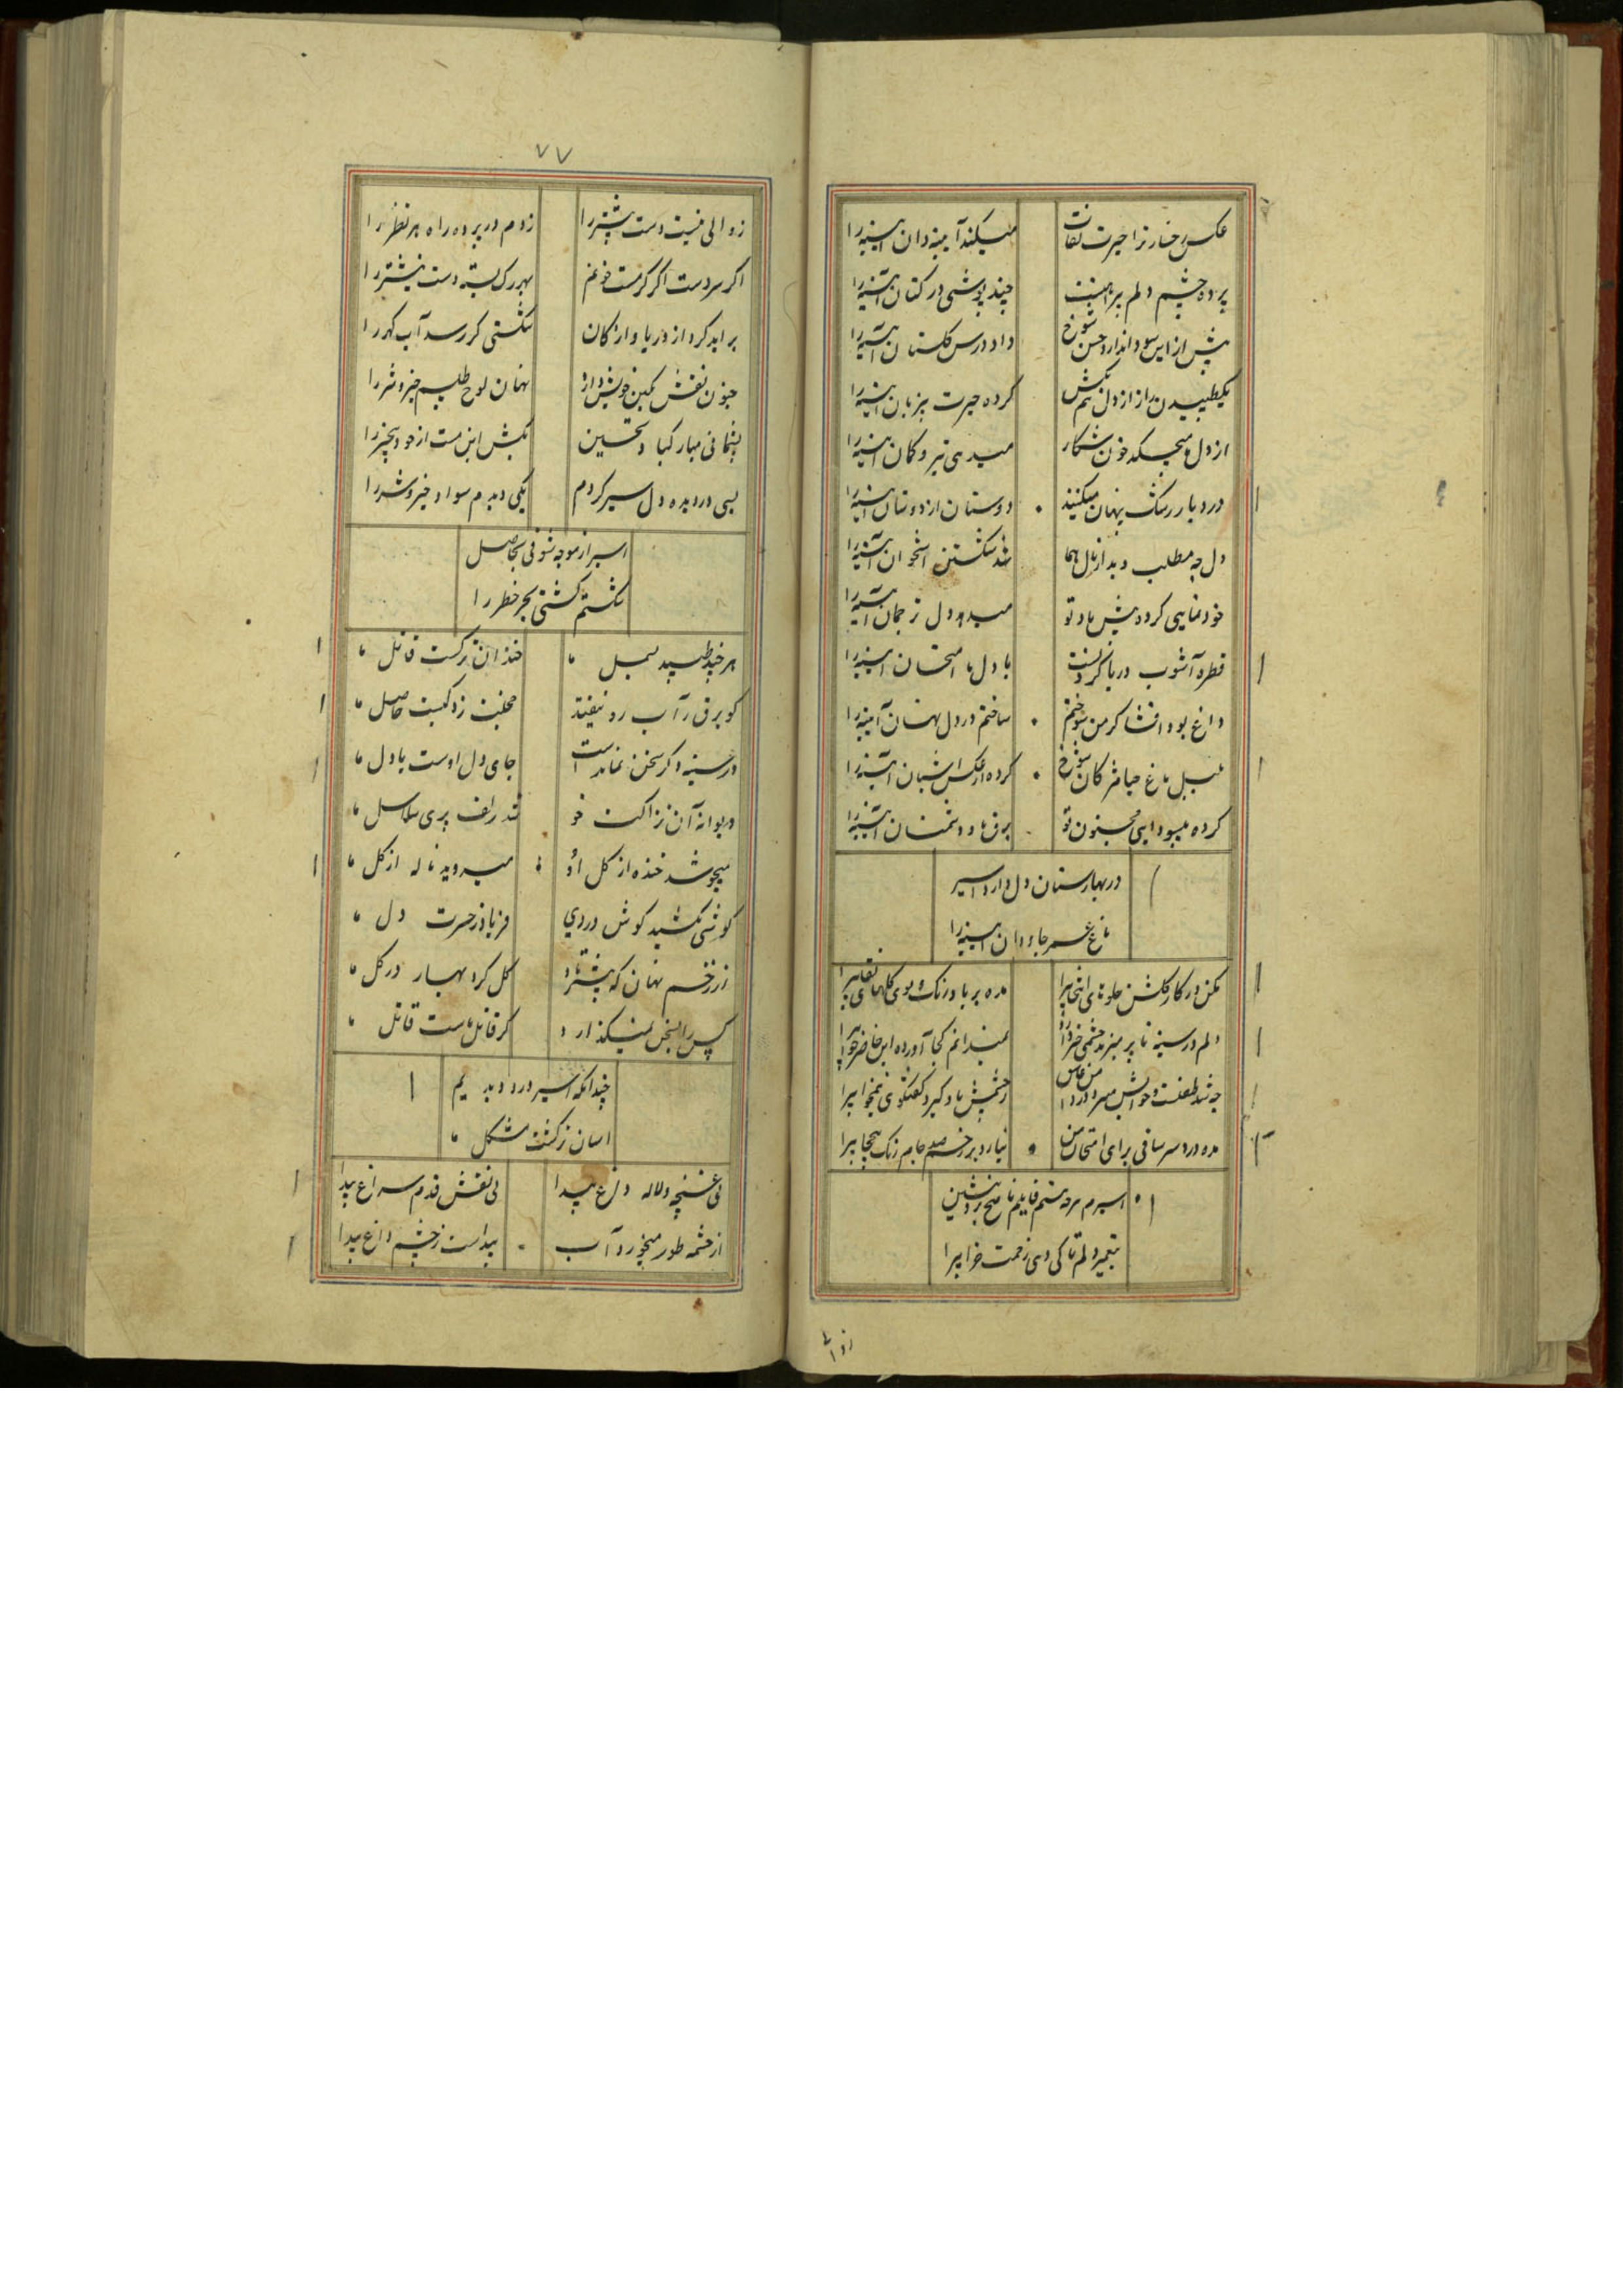 عکس رخسار ترا حیرت نقابست میکند آیینه دان آیینه را
پرده چشم دلم پیراهنست چند پوشی در کتان آیینه را
پیش از این سودا ندارد حسن شوخ داد درس گلستان آیینه را
یکطپیدن راز از دل کم نکش کرده حیرت بیزبان آیینه را
از دل ما میچکد خون شکار میدهی تیر و کمان آیینه را
درد یار رشک پنهان میکنند دوستان از دوستان آیینه را
دل چه مطلب دید از بال هما شد شکستن استخوان آیینه را
خودنمایی کرد پیش یاد تو میدهد دل ترجمان آیینه را
قطره آشوب دریا کردنست با دل ما امتحان آیینه را
داغ بود افشا گر من سوختم ساختم در دل نهان آیینه را
بلبل باغ حیا مژگان شوخ کرده از عکس آشیان آیینه را
کرده میسودایی مجنون تو برق ما و دشمنان آیینه را
در بهارستان دل دارد اسیر
باغ عمر جاودان آیینه را
مکن در کار گلشن جلوهای انتخابیرا مده بر باد رنگ و بوی گلهای نقابیرا
دلم در سینه تا پر میزند چشمی خبر دارد نمیدانم کجا آورده این حاضر جوابیرا
چه شد طفلست و حواسش میرود از من ز چشمش یاد گیرد گفتگوی نیمخوابیرا
مده دردسر ساقی برای امتحان من نیارد بر زخم صد جام رنگ بیحجابیرا
اسیرم هر چه هستم قابلیم ناصح برو بنشین
بتعمیر دلم تا کی دهی زحمت خرابیرا
زوالی
۷۷
زوالی نیست دست پیشتر را زدم در پرده راه هر نظر را
اگر سردست اگر گرمست خونم بهر رگ بسته دست نیشتر را
برآید گرد از دریا و از کان شکستی گر رسد آب گهر را
جنون نقش نگین خویش دارد نهان لوح طلسم خیر و شر را
پشیمانی مبارکباد تحسین بکش این مست از خود بیخبر را
بسی در دیده دل سیر کردم یکی دیدم سواد خیر و شر را
اسیر از موجه شوقی بساحل
شکستم کشتی بحر خطر را
هر چند طپید بسمل ما خندان نگرست قاتل ما
کو برق در آب رو نیفتد خجلت زده کیست حاصل ما
در سینه دگر سخن نماندست جای دل اوست یا دل ما
دیوانه آن نزاکت خو شد زلف پری سلاسل ما
میجوشد خنده از گل او میروید ناله از گل ما
گوشی نکشید گوش دردی فریاد ز حسرت دل ما
از زخم نهان که پیشتر زاد گل کرد بهار در گل ما
کس را بسخن نمیگذارد گر قاتل ماست قاتل ما
چندانکه اسیر درد دیدیم
آسان نگذشت مشکل ما
نی غنچه و لاله داغ پیدا نی نقش قدم سراغ پیدا
از چشمه طور میخورد آب پیداست ز چشم داغ پیدا